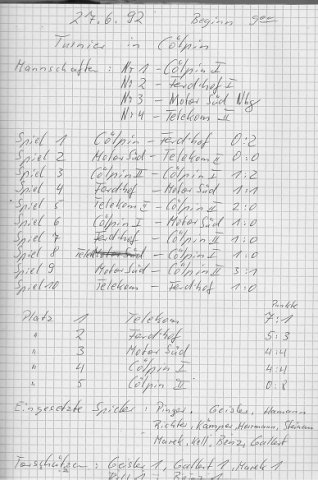 27.6.92 Beginn 9ºº
Turnier in Cölpin
Mannschaften : Nr 1 - Cölpin I
Nr 2 - Ferdihof I
Nr 3 - Motor Süd Nbg
Nr 4 - Telekom II
Spiel 1 Cölpin - Ferdhof 0:2
Spiel 2 Motor Süd - Telekom II 0:0
Spiel 3 Cölpin II - Cölpin I 1:2
Spiel 4 Ferdhof - Motor Süd 1:1
Spiel 5 Telekom II - Cölpin II 2:0
Spiel 6 Cölpin I - Motor Süd 1:0
Spiel 7 Ferdhof - Cölpin II 1:0
Spiel 8 Telekom - Cölpin I 1:0
Spiel 9 Motor Süd - Cölpin II 3:1
Spiel 10 Telekom - Ferdhof 1:0
Punkte
Platz 1 Telekom 7:1
" 2 Ferdhof 5:3
" 3 Motor Süd 4:4
" 4 Cölpin I 4:4
" 5 Cölpin II 0:8
Eingesetzte Spieler : Geisler, Hamann
Richter, Kämper, Herrmann,
Marek, Koll, Benz, Gallert
Torschützen : Geisler 1, Gallert 1, Marek 1
Koll 1, Benz 1